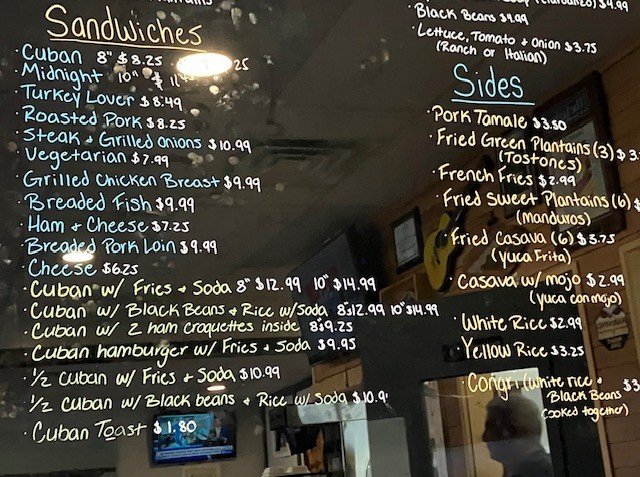 Sandwiches
· Cuban 8" $8.25
· Midnight 10" $ 25
· Turkey Lover $8.49
· Roasted Pork $8.25
· Steak + Grilled Onions $10.99
· Vegetarian $7.99
· Grilled Chicken Breast $9.99
· Breaded Fish $9.99
· Ham + Cheese $7.25
· Breaded Pork Loin $9.99
· Cheese $6.25
· Cuban w/ Fries + Soda 8" $12.99 10" $14.99
· Cuban w/ Black Beans + Rice w/Soda 8" $12.99 10" $14.99
· Cuban w/ 2 ham croquettes inside 8" $9.25
· Cuban hamburger w/ Fries + Soda $9.95
· 1/2 Cuban w/ Fries + Soda $10.99
· 1/2 Cuban w/ Black beans + Rice w/ Soda $10.9
· Cuban Toast $1.80
$4.99
· Black Beans $4.99
· Lettuce, Tomato + Onion $3.75
(Ranch or Italian)
Sides
· Pork Tamale $3.50
· Fried Green Plantains (3) $3.
(Tostones)
· French Fries $2.99
· Fried Sweet Plantains (6) $
(manduros)
· Fried Casava (6) $3.75
(yuca Frita)
· Casava w/ mojo $2.99
(yuca con mojo)
· White Rice $2.99
· Yellow Rice $3.25
· Congri (white rice + $3
Black Beans
cooked together)